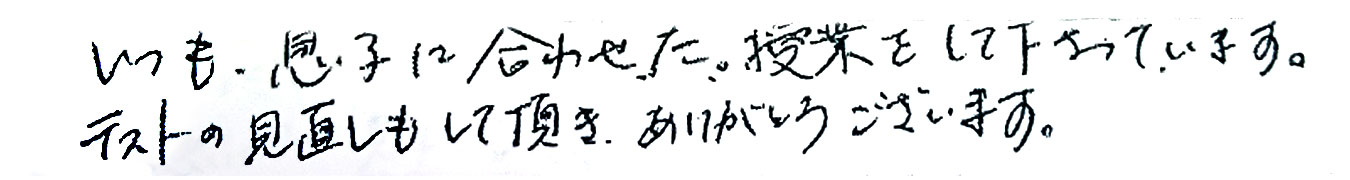 いつも、息子に合わせた。授業をして下さっています。
テストの見直しもして頂き、ありがとうございます。